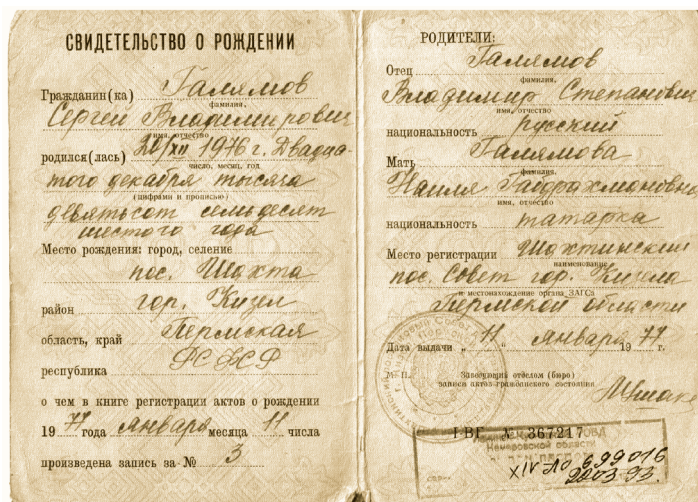 СВИДЕТЕЛЬСТВО О РОЖДЕНИИ
Гражданин(ка) Галямов
фамилия,
Сергей Владимирович
имя, отчество
родился(лась) 20/XII 1976 г. Двадца
число, месяц, год
того декабря тысяча
(цифрами и прописью)
девятьсот семьдесят
шестого года
Место рождения: город, селение
пос. Шахта
район гор. Кизел
область, край Пермская
республика РСФСР
о чем в книге регистрации актов о рождении
19 77 года января месяца 11 числа
произведена запись за № 3
РОДИТЕЛИ:
Отец Галямов
фамилия,
Владимир Степанович
имя, отчество
национальность русский
Мать Галямова
фамилия,
Наиля Габдрахмановна
имя, отчество
национальность татарка
Место регистрации Шахтинский
наименование
пос. Совет гор. Кизела
и местонахождение органа ЗАГСа
Пермской области
Дата выдачи „ 11 „ января 19 77 г.
М. П. Заведующий отделом (бюро)
записи актов гражданского состояния
I ВГ № 367217
Кемеровской области
XIV ЛО 699016
22.03.93.